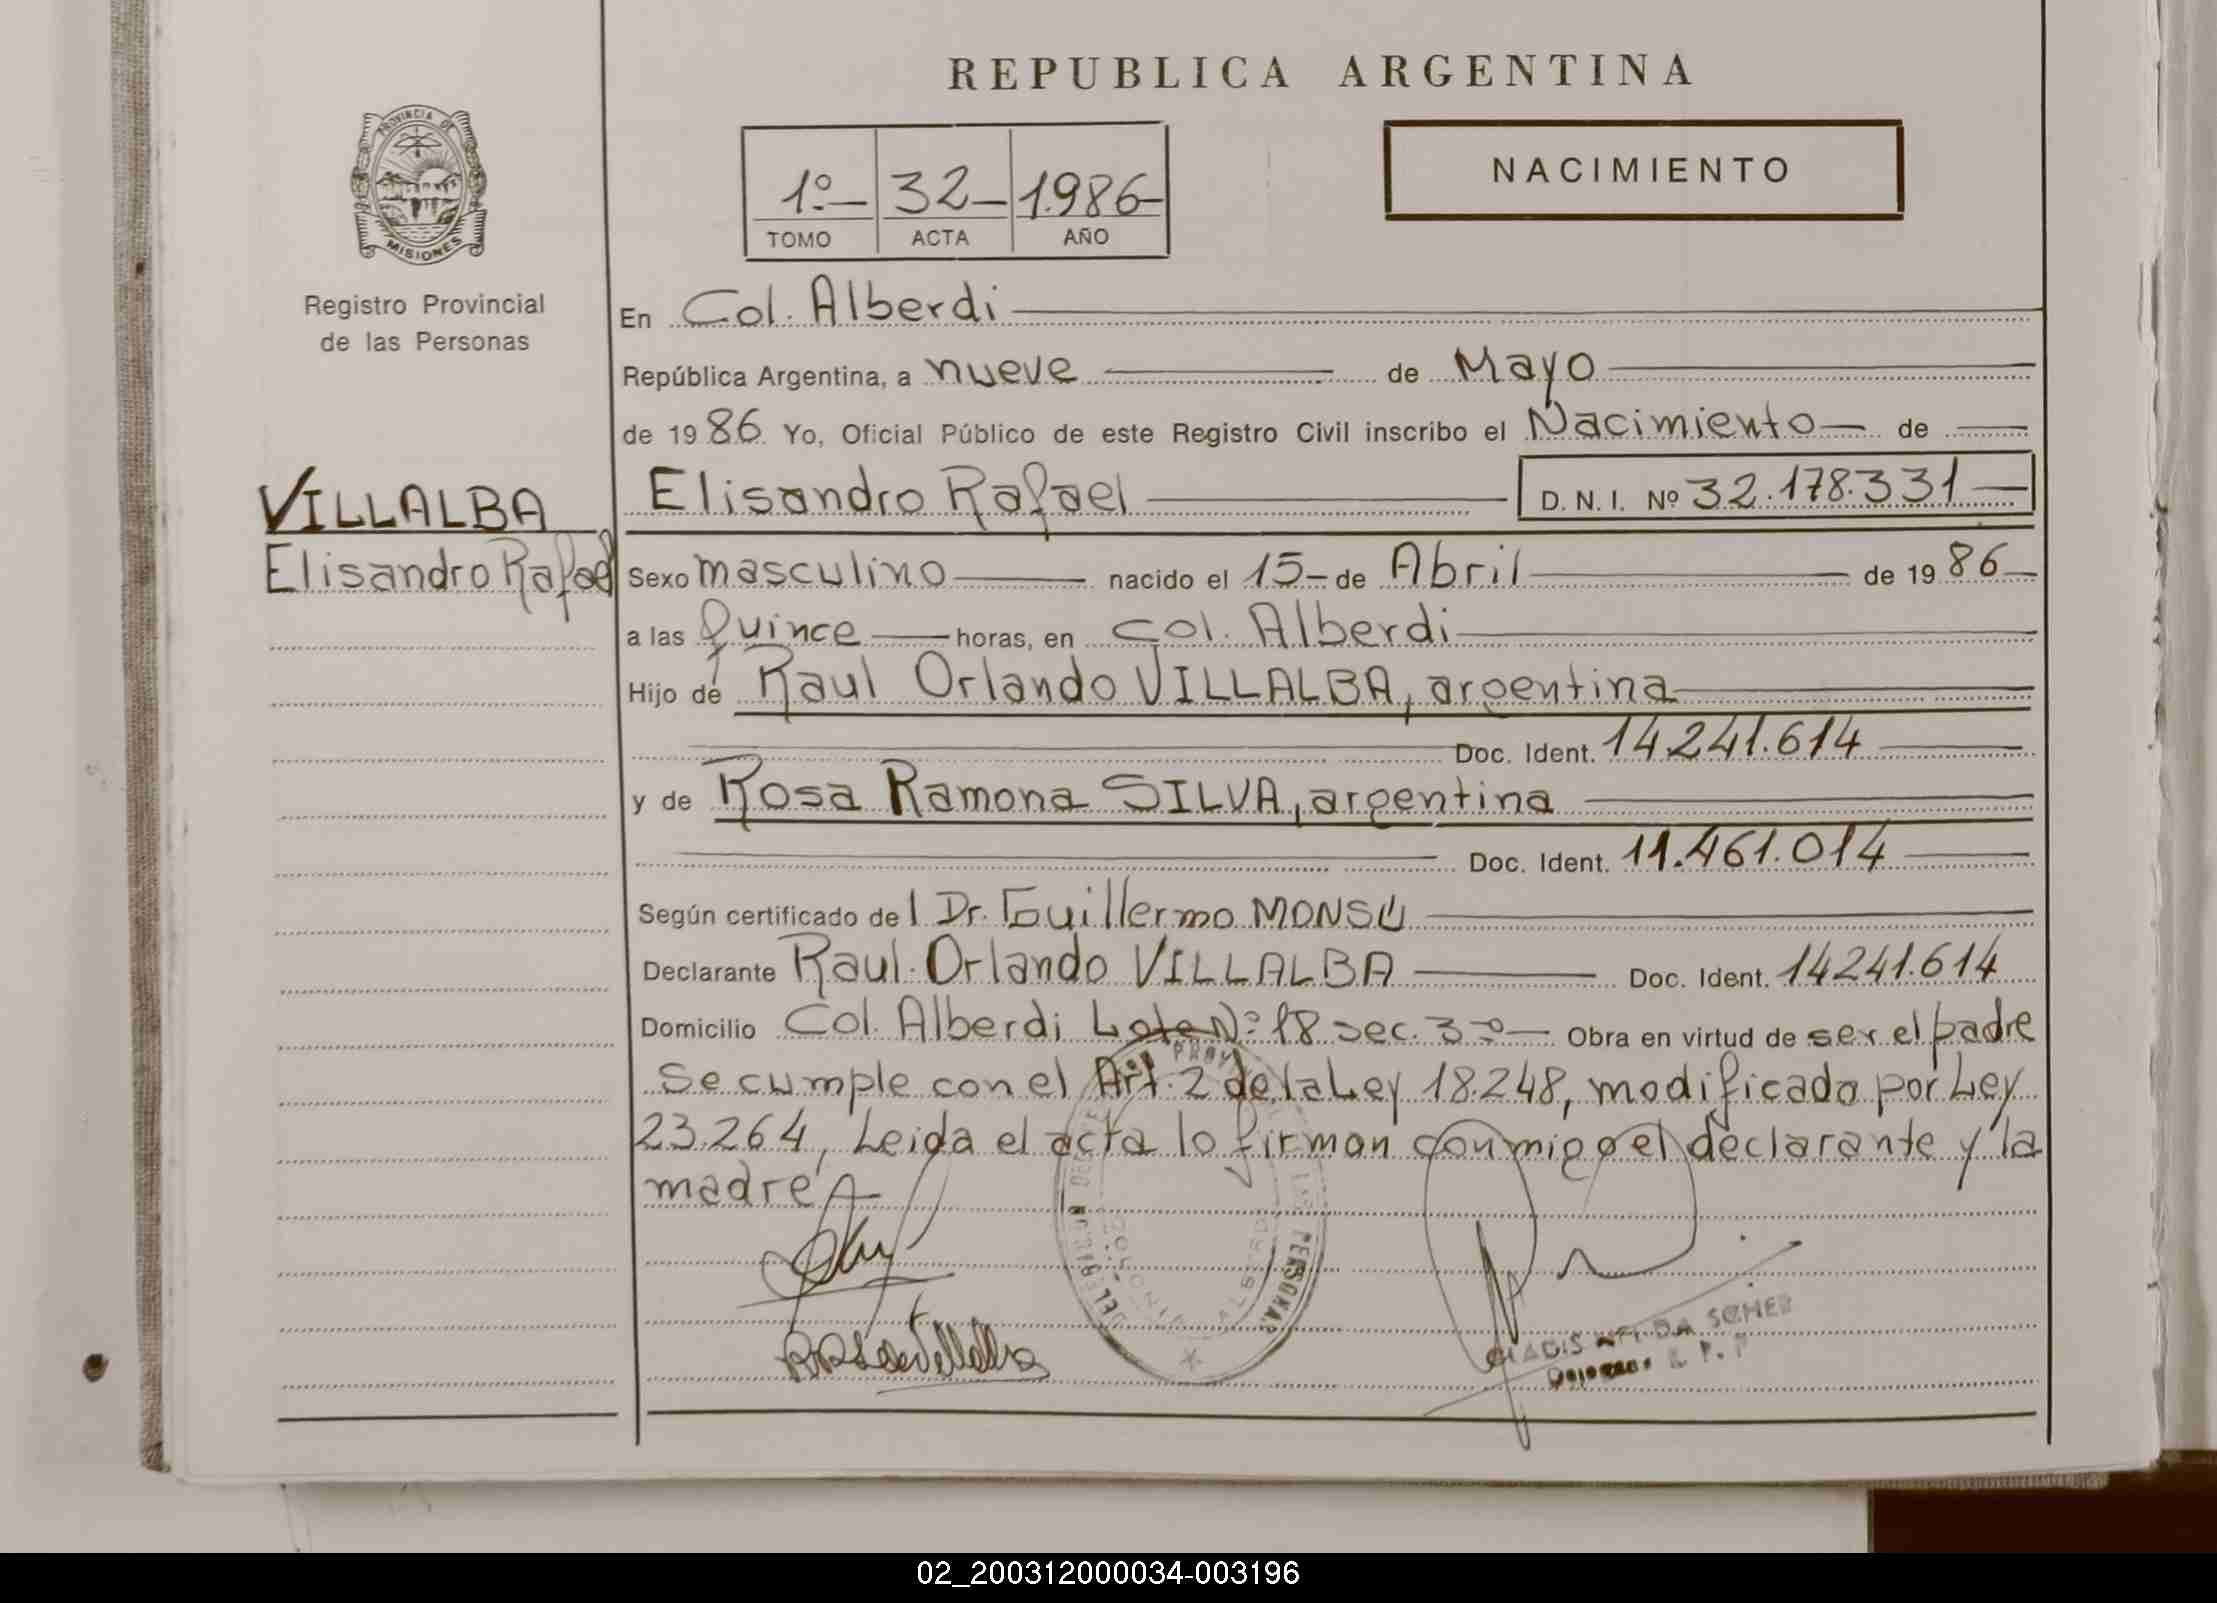 REPUBLICA ARGENTINA
PROVINCIA DE
MISIONES
Registro Provincial
de las Personas
1º 32 1.986
TOMO ACTA AÑO
NACIMIENTO
En Col. Alberdi
República Argentina, a nueve de Mayo
de 1986 Yo, Oficial Público de este Registro Civil inscribo el Nacimiento de
VILLALBA
Elisandro Rafael
Elisandro Rafael D. N. I. Nº 32.178.331
Sexo masculino nacido el 15 de Abril de 1986
a las Quince horas, en Col. Alberdi
Hijo de Raul Orlando VILLALBA, argentina
Doc. Ident. 14.241.614
y de Rosa Ramona SILVA, argentina
Doc. Ident. 11.461.014
Según certificado del Dr. Guillermo MONSU
Declarante Raul Orlando VILLALBA Doc. Ident. 14241.614
Domicilio Col. Alberdi Lote Nº 18 sec. 3º Obra en virtud de ser el padre
Se cumple con el Art. 2 de la Ley 18.248, modificado por Ley
23.264, Leida el acta lo firman conmigo el declarante y la
madre
PERSONAS
GLADIS SCHER
02_200312000034-003196